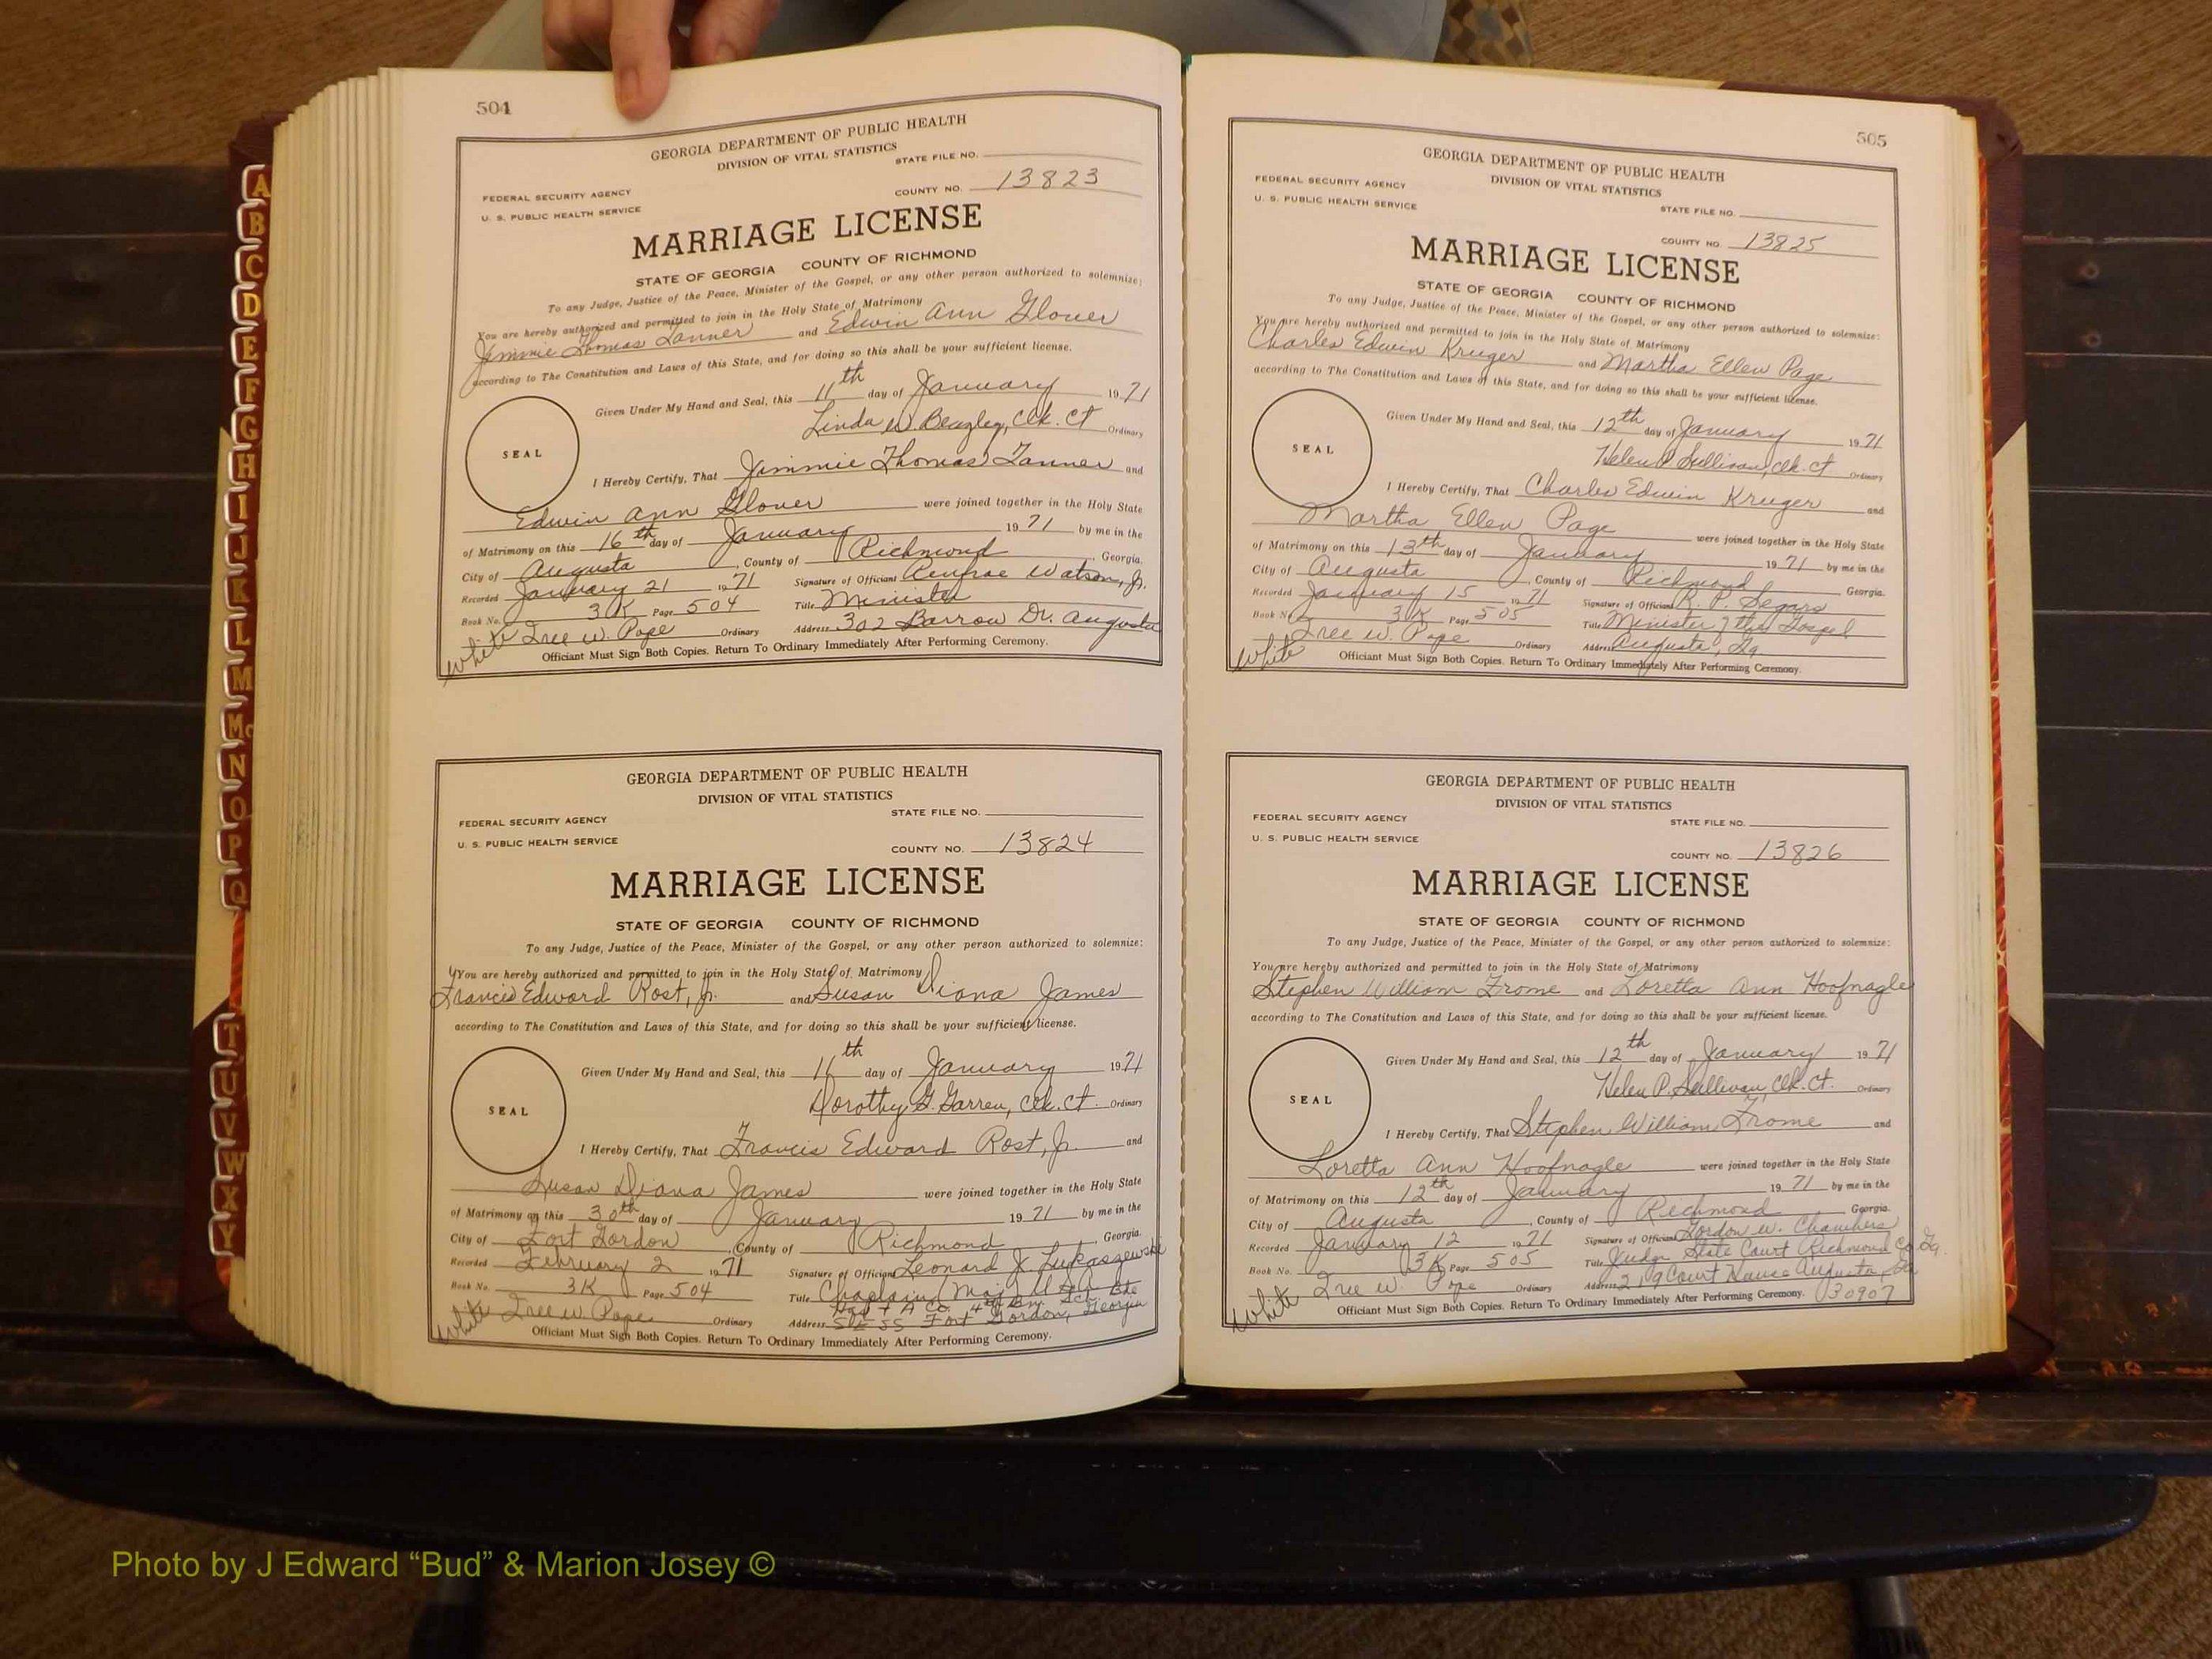 504
GEORGIA DEPARTMENT OF PUBLIC HEALTH
DIVISION OF VITAL STATISTICS
STATE FILE NO.
FEDERAL SECURITY AGENCY
COUNTY NO. 13823
U. S. PUBLIC HEALTH SERVICE
MARRIAGE LICENSE
STATE OF GEORGIA COUNTY OF RICHMOND
To any Judge, Justice of the Peace, Minister of the Gospel, or any other person authorized to solemnize:
You are hereby authorized and permitted to join in the Holy State of Matrimony
Jimmie Thomas Tanner and Edwin Ann Glover
according to The Constitution and Laws of this State, and for doing so this shall be your sufficient license.
Given Under My Hand and Seal, this 11th day of January 1971
Linda W. Beazley, Clk. Ct Ordinary
SEAL
I Hereby Certify, That Jimmie Thomas Tanner and
Edwin Ann Glover were joined together in the Holy State
of Matrimony on this 16th day of January 1971 by me in the
City of Augusta, County of Richmond, Georgia.
Recorded January 21 1971 Signature of Officiant Renfroe Watson, Jr.
Book No. 3K Page 504 Title Minister
Tree W. Pope Ordinary Address 302 Barrow Dr. Augusta
White
Officiant Must Sign Both Copies. Return To Ordinary Immediately After Performing Ceremony.
GEORGIA DEPARTMENT OF PUBLIC HEALTH
DIVISION OF VITAL STATISTICS
STATE FILE NO.
FEDERAL SECURITY AGENCY
U. S. PUBLIC HEALTH SERVICE
COUNTY NO. 13824
MARRIAGE LICENSE
STATE OF GEORGIA COUNTY OF RICHMOND
To any Judge, Justice of the Peace, Minister of the Gospel, or any other person authorized to solemnize:
You are hereby authorized and permitted to join in the Holy State of Matrimony
Francis Edward Rost, Jr. and Susan Diana James
according to The Constitution and Laws of this State, and for doing so this shall be your sufficient license.
Given Under My Hand and Seal, this 11th day of January 1971
Dorothy G. Garren, Clk. Ct. Ordinary
SEAL
I Hereby Certify, That Francis Edward Rost, Jr. and
Susan Diana James were joined together in the Holy State
of Matrimony on this 30th day of January 1971 by me in the
City of Fort Gordon, County of Richmond, Georgia.
Recorded February 2 1971 Signature of Officiant Leonard J. Lukaszewski
Book No. 3K Page 504 Title Chaplain Maj
Hq & A Co. 4th Bn. Sch Bde
Tree W. Pope Ordinary Address Fort Gordon, Georgia
White
Officiant Must Sign Both Copies. Return To Ordinary Immediately After Performing Ceremony.
505
GEORGIA DEPARTMENT OF PUBLIC HEALTH
DIVISION OF VITAL STATISTICS
FEDERAL SECURITY AGENCY
U. S. PUBLIC HEALTH SERVICE
STATE FILE NO.
COUNTY NO. 13825
MARRIAGE LICENSE
STATE OF GEORGIA COUNTY OF RICHMOND
To any Judge, Justice of the Peace, Minister of the Gospel, or any other person authorized to solemnize:
You are hereby authorized and permitted to join in the Holy State of Matrimony
Charles Edwin Kruger and Martha Ellen Page
according to The Constitution and Laws of this State, and for doing so this shall be your sufficient license.
Given Under My Hand and Seal, this 12th day of January 1971
Helen P. Sullivan, Clk. Ct Ordinary
SEAL
I Hereby Certify, That Charles Edwin Kruger and
Martha Ellen Page were joined together in the Holy State
of Matrimony on this 13th day of January 1971 by me in the
City of Augusta, County of Richmond Georgia.
Recorded January 15 1971 Signature of Officiant R. P. Segars
Book No. 3K Page 505 Title Minister of the Gospel
Tree W. Pope Ordinary Address Augusta, Ga.
White
Officiant Must Sign Both Copies. Return To Ordinary Immediately After Performing Ceremony.
GEORGIA DEPARTMENT OF PUBLIC HEALTH
DIVISION OF VITAL STATISTICS
FEDERAL SECURITY AGENCY
STATE FILE NO.
U. S. PUBLIC HEALTH SERVICE
COUNTY NO. 13826
MARRIAGE LICENSE
STATE OF GEORGIA COUNTY OF RICHMOND
To any Judge, Justice of the Peace, Minister of the Gospel, or any other person authorized to solemnize:
You are hereby authorized and permitted to join in the Holy State of Matrimony
Stephen William Frome and Loretta Ann Hoofnagle
according to The Constitution and Laws of this State, and for doing so this shall be your sufficient license.
Given Under My Hand and Seal, this 12th day of January 1971
Helen P. Sullivan, Clk. Ct. Ordinary
SEAL
I Hereby Certify, That Stephen William Frome and
Loretta Ann Hoofnagle were joined together in the Holy State
of Matrimony on this 12th day of January 1971 by me in the
City of Augusta, County of Richmond Georgia.
Recorded January 12 1971 Signature of Officiant Gordon W. Chambers
Book No. 3K Page 505 Title Judge State Court Richmond Co. Ga.
Tree W. Pope Ordinary Address 219 Court House Augusta, Ga
30907
White
Officiant Must Sign Both Copies. Return To Ordinary Immediately After Performing Ceremony.
A
B
C
D
E
F
G
H
I
J
K
L
M
Mc
N
O
P
Q
T
U
V
W
X
Y
Photo by J Edward “Bud” & Marion Josey ©